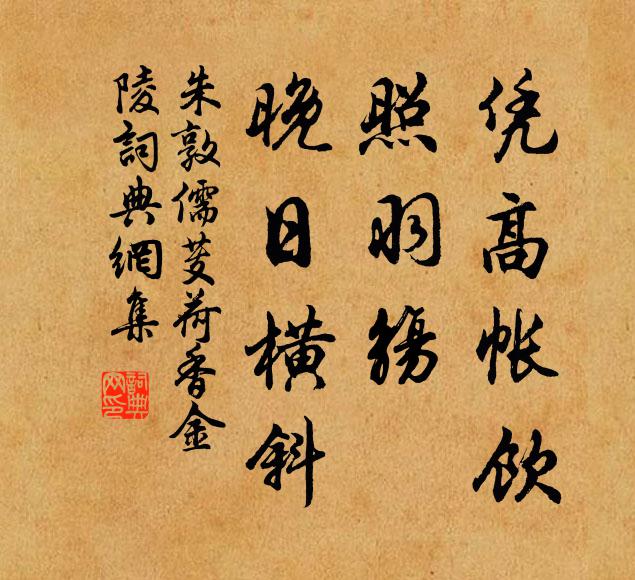 凭高帐饮
照羽觞
晚日横斜
朱敦儒芰荷香金
陵詞典網集
詞典
网印